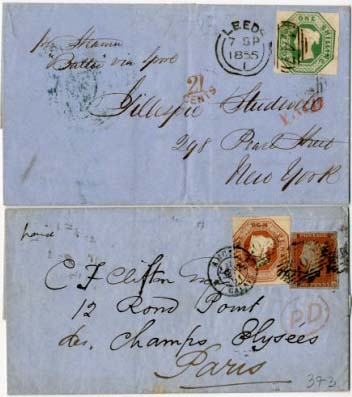 pr Steamer
"Baltic" via Lpool
LEEDS
7 SP
1855
1
ONE
SHILLING
21
CENTS
PAID
Gillespie Studwell
298 Pearl Street
New York
paid
C F Clifton
12 Rond Point
des Champs Elysées
Paris
PD
373